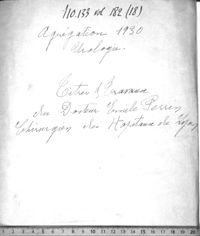 110.133 vol 182 (18)
Agrégation 1930
Urologie.
Titres & Travaux
du Docteur Emile Perrin
Chirurgien des Hopitaux de Lyon
1 2 3 4 5 6 7 8 9 10 11 12 13 14 15 16 17 18 19 20